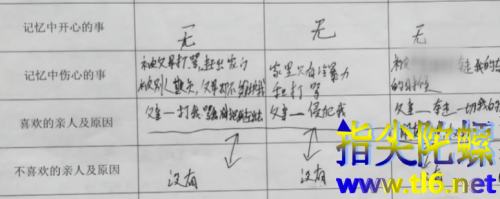 记忆中开心的事 无 无 无
记忆中伤心的事 被父母打骂,赶出家门 家里只有冷暴力
被别人欺负,父母 和打骂
喜欢的亲人及原因 父亲一打我 父亲一侵犯我 父亲一夺走一切我的
指尖陀螺
不喜欢的亲人及原因 没有 没有 没有
www.tl6.net